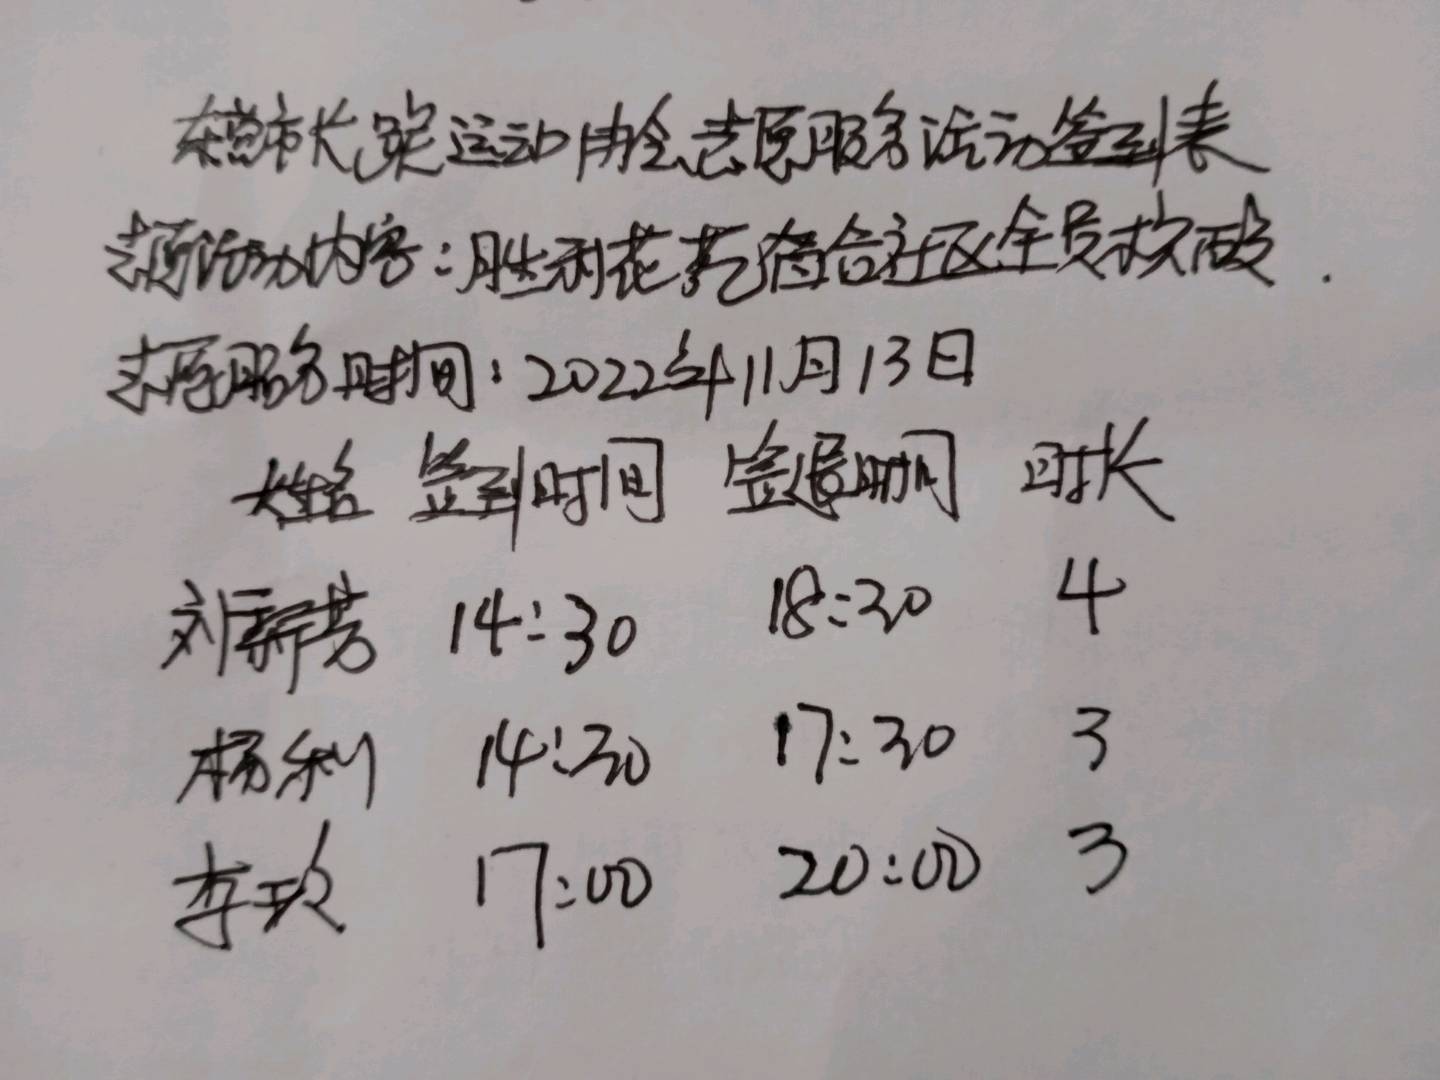 东营市长跑运动协会志愿服务活动签到表
志愿活动内容：胜利花苑 社区全员核酸.
志愿服务时间：2022年11月13日
姓名 签到时间 签退时间 时长
刘新芳 14:30 18:30 4
杨利 14:30 17:30 3
李玫 17:00 20:00 3